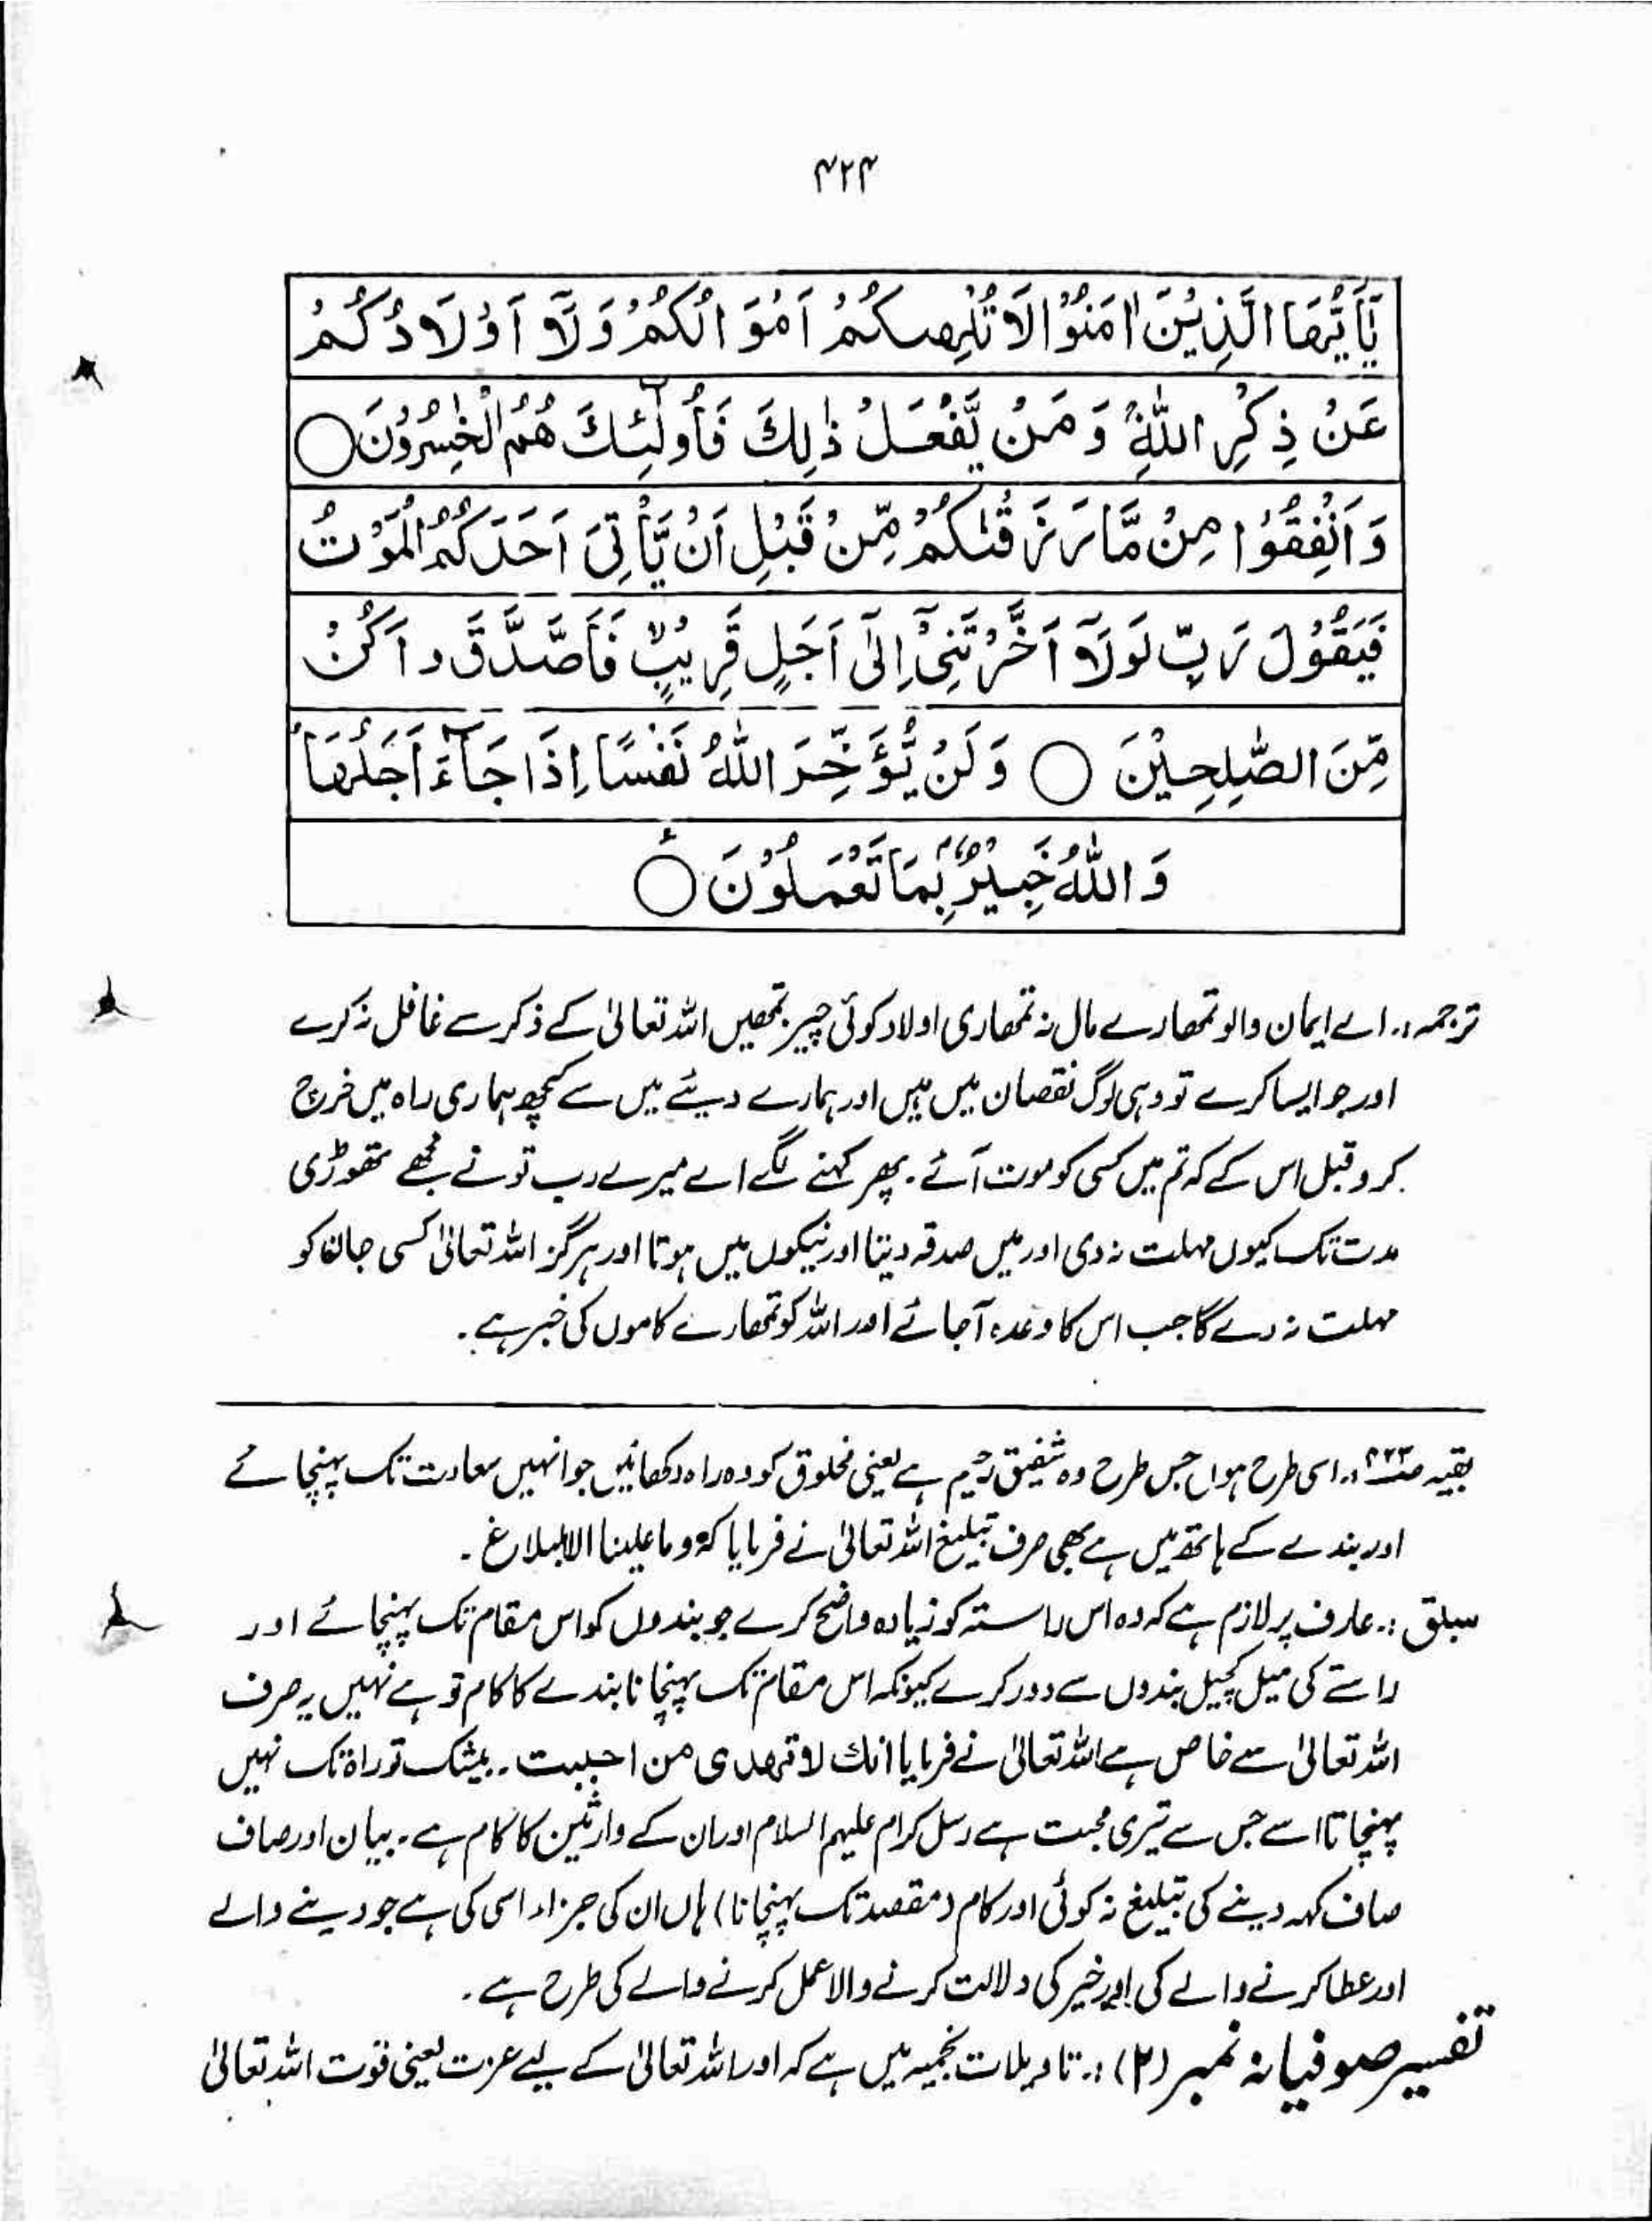 ۴۲۴
يٰۤاَيُّهَا الَّذِيْنَ اٰمَنُوْا لَا تُلْهِكُمْ اَمْوَالُكُمْ وَلَاۤ اَوْلَادُكُمْ
عَنْ ذِكْرِ اللّٰهِۚ وَمَنْ يَّفْعَلْ ذٰلِكَ فَاُولٰٓئِكَ هُمُ الْخٰسِرُوْنَ○
وَاَنْفِقُوْا مِنْ مَّا رَزَقْنٰكُمْ مِّنْ قَبْلِ اَنْ يَّاْتِىَ اَحَدَكُمُ الْمَوْتُ
فَيَقُوْلَ رَبِّ لَوْلَاۤ اَخَّرْتَنِىْۤ اِلٰٓى اَجَلٍ قَرِيْبٍۙ فَاَصَّدَّقَ وَاَكُنْ
مِّنَ الصّٰلِحِيْنَ ○ وَلَنْ يُّؤَخِّرَ اللّٰهُ نَفْسًا اِذَا جَآءَ اَجَلُهَاؕ
وَاللّٰهُ خَبِيْرٌۢ بِمَا تَعْمَلُوْنَ○
ترجمہ:۔ اے ایمان والو تمھارے مال نہ تمھاری اولاد کوئی چیز تمھیں اللہ تعالیٰ کے ذکر سے غافل نہ کرے
اور جو ایسا کرے تو وہی لوگ نقصان میں ہیں اور ہمارے دیئے میں سے کچھ ہماری راہ میں خرچ
کرو قبل اس کے کہ تم میں کسی کو موت آئے۔ پھر کہنے لگے اے میرے رب تو نے مجھے تھوڑی
مدت تک کیوں مہلت نہ دی اور میں صدقہ دیتا اور نیکوں میں ہوتا اور ہرگز اللہ تعالیٰ کسی جان کو
مہلت نہ دے گا جب اس کا وعدہ آجائے اور اللہ کو تمھارے کاموں کی خبر ہے۔
بقیہ ص۴۲۳:۔ اسی طرح ہوں جس طرح وہ شفیق رحیم ہے یعنی مخلوق کو وہ راہ دکھائیں جو انہیں سعادت تک پہنچائے
اور بندے کے ہاتھ میں ہے بھی صرف تبلیغ اللہ تعالیٰ نے فرمایا کہ وما علینا الا البلاغ۔
سبق:۔ عارف پر لازم ہے کہ وہ اس راستہ کو زیادہ واضح کرے جو بندوں کو اس مقام تک پہنچائے اور
راستے کی میل کچیل بندوں سے دور کرے کیونکہ اس مقام تک پہنچانا بندے کا کام تو ہے نہیں یہ صرف
اللہ تعالیٰ سے خاص ہے اللہ تعالیٰ نے فرمایا انك لا تهدى من احببت۔ بیشک تو راہ تک نہیں
پہنچاتا اسے جس سے تیری محبت ہے رسل کرام علیہم السلام اور ان کے وارثین کا کام ہے۔ بیان اور صاف
صاف کہہ دینے کی تبلیغ نہ کوئی اور کام (مقصد تک پہنچانا) ہاں ان کی جزاء اسی کی ہے جو دینے والے
اور عطا کرنے والے کی اور خیر کی دلالت کرنے والا عمل کرنے والے کی طرح ہے۔
تفسیر صوفیانہ نمبر (۲):۔ تاویلات نجمیہ میں ہے کہ اور اللہ تعالیٰ کے لیے عزت یعنی قوت اللہ تعالیٰ